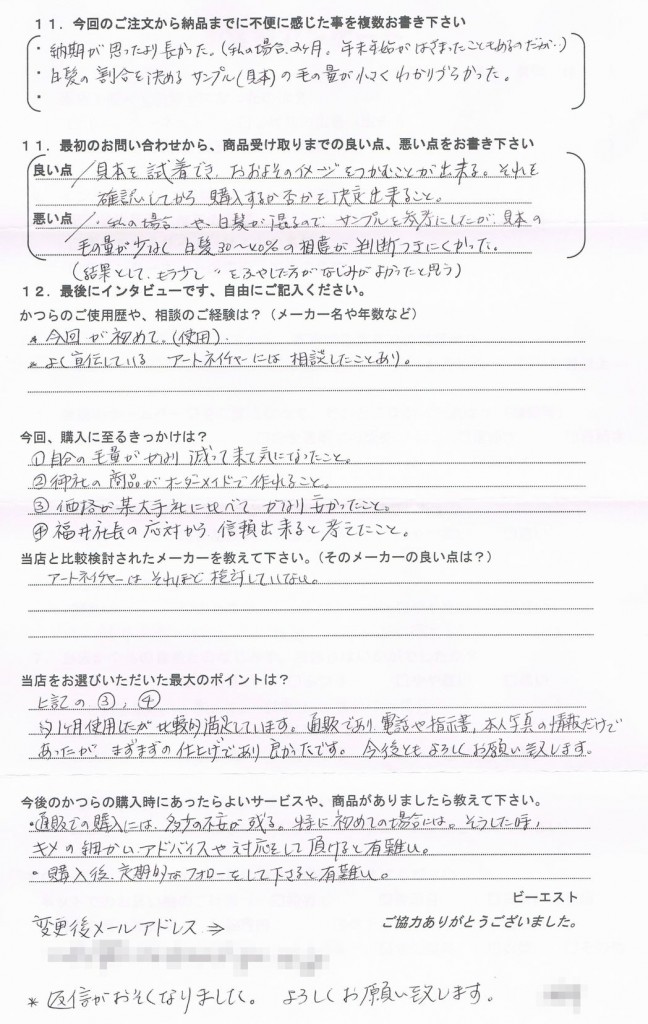 １１．今回のご注文から納品までに不便に感じた事を複数お書き下さい
・納期が思ったより長かった。（私の場合、2ヶ月。年末年始がはさまったこともあるのだが…）
・白髪の割合を決めるサンプル（見本）の毛の量が小さくわかりづらかった。
・
１１．最初のお問い合わせから、商品受け取りまでの良い点、悪い点をお書き下さい
良い点 見本を試着でき、おおよそのイメージをつかむことが出来る。それを
確認してから購入するか否かを決定出来ること。
悪い点 ・私の場合、や、白髪が混るので、サンプルを参考にしたが、見本の
毛の量が少なく白髪30〜40%の相違が判断つきにくかった。
（結果として、もう少し 〃 をふやした方がなじみがよかったと思う）
１２．最後にインタビューです、自由にご記入ください。
かつらのご使用歴や、相談のご経験は？（メーカー名や年数など）
* 今回が初めて。（使用）
* よく宣伝しているアートネイチャーには相談したことあり。
今回、購入に至るきっかけは？
①自分の毛量がかなり減って来て気になったこと。
②御社の商品がオーダーメイドで作れること。
③価格が某大手社に比べてかなり安かったこと。
④福井社長の応対から信頼出来ると考えたこと。
当店と比較検討されたメーカーを教えて下さい。（そのメーカーの良い点は？）
アートネイチャーはそれほど検討していない。
当店をお選びいただいた最大のポイントは？
上記の③，④
約1ヶ月使用したが比較的満足しています。通販であり、電話や指示書、本人写真の情報だけで
あったが、まずまずの仕上げであり良かったです。今後ともよろしくお願い致します。
今後のかつらの購入時にあったらよいサービスや、商品がありましたら教えて下さい。
・通販での購入には、多少の不安が残る。特に初めての場合には。そうした時、
キメの細かいアドバイスや対応をして頂けると有難い。
・購入後、定期的なフォローをして下さると有難い。
ビーエスト
ご協力ありがとうございました。
変更後メールアドレス ⇒
* 返信がおそくなりました。よろしくお願い致します。